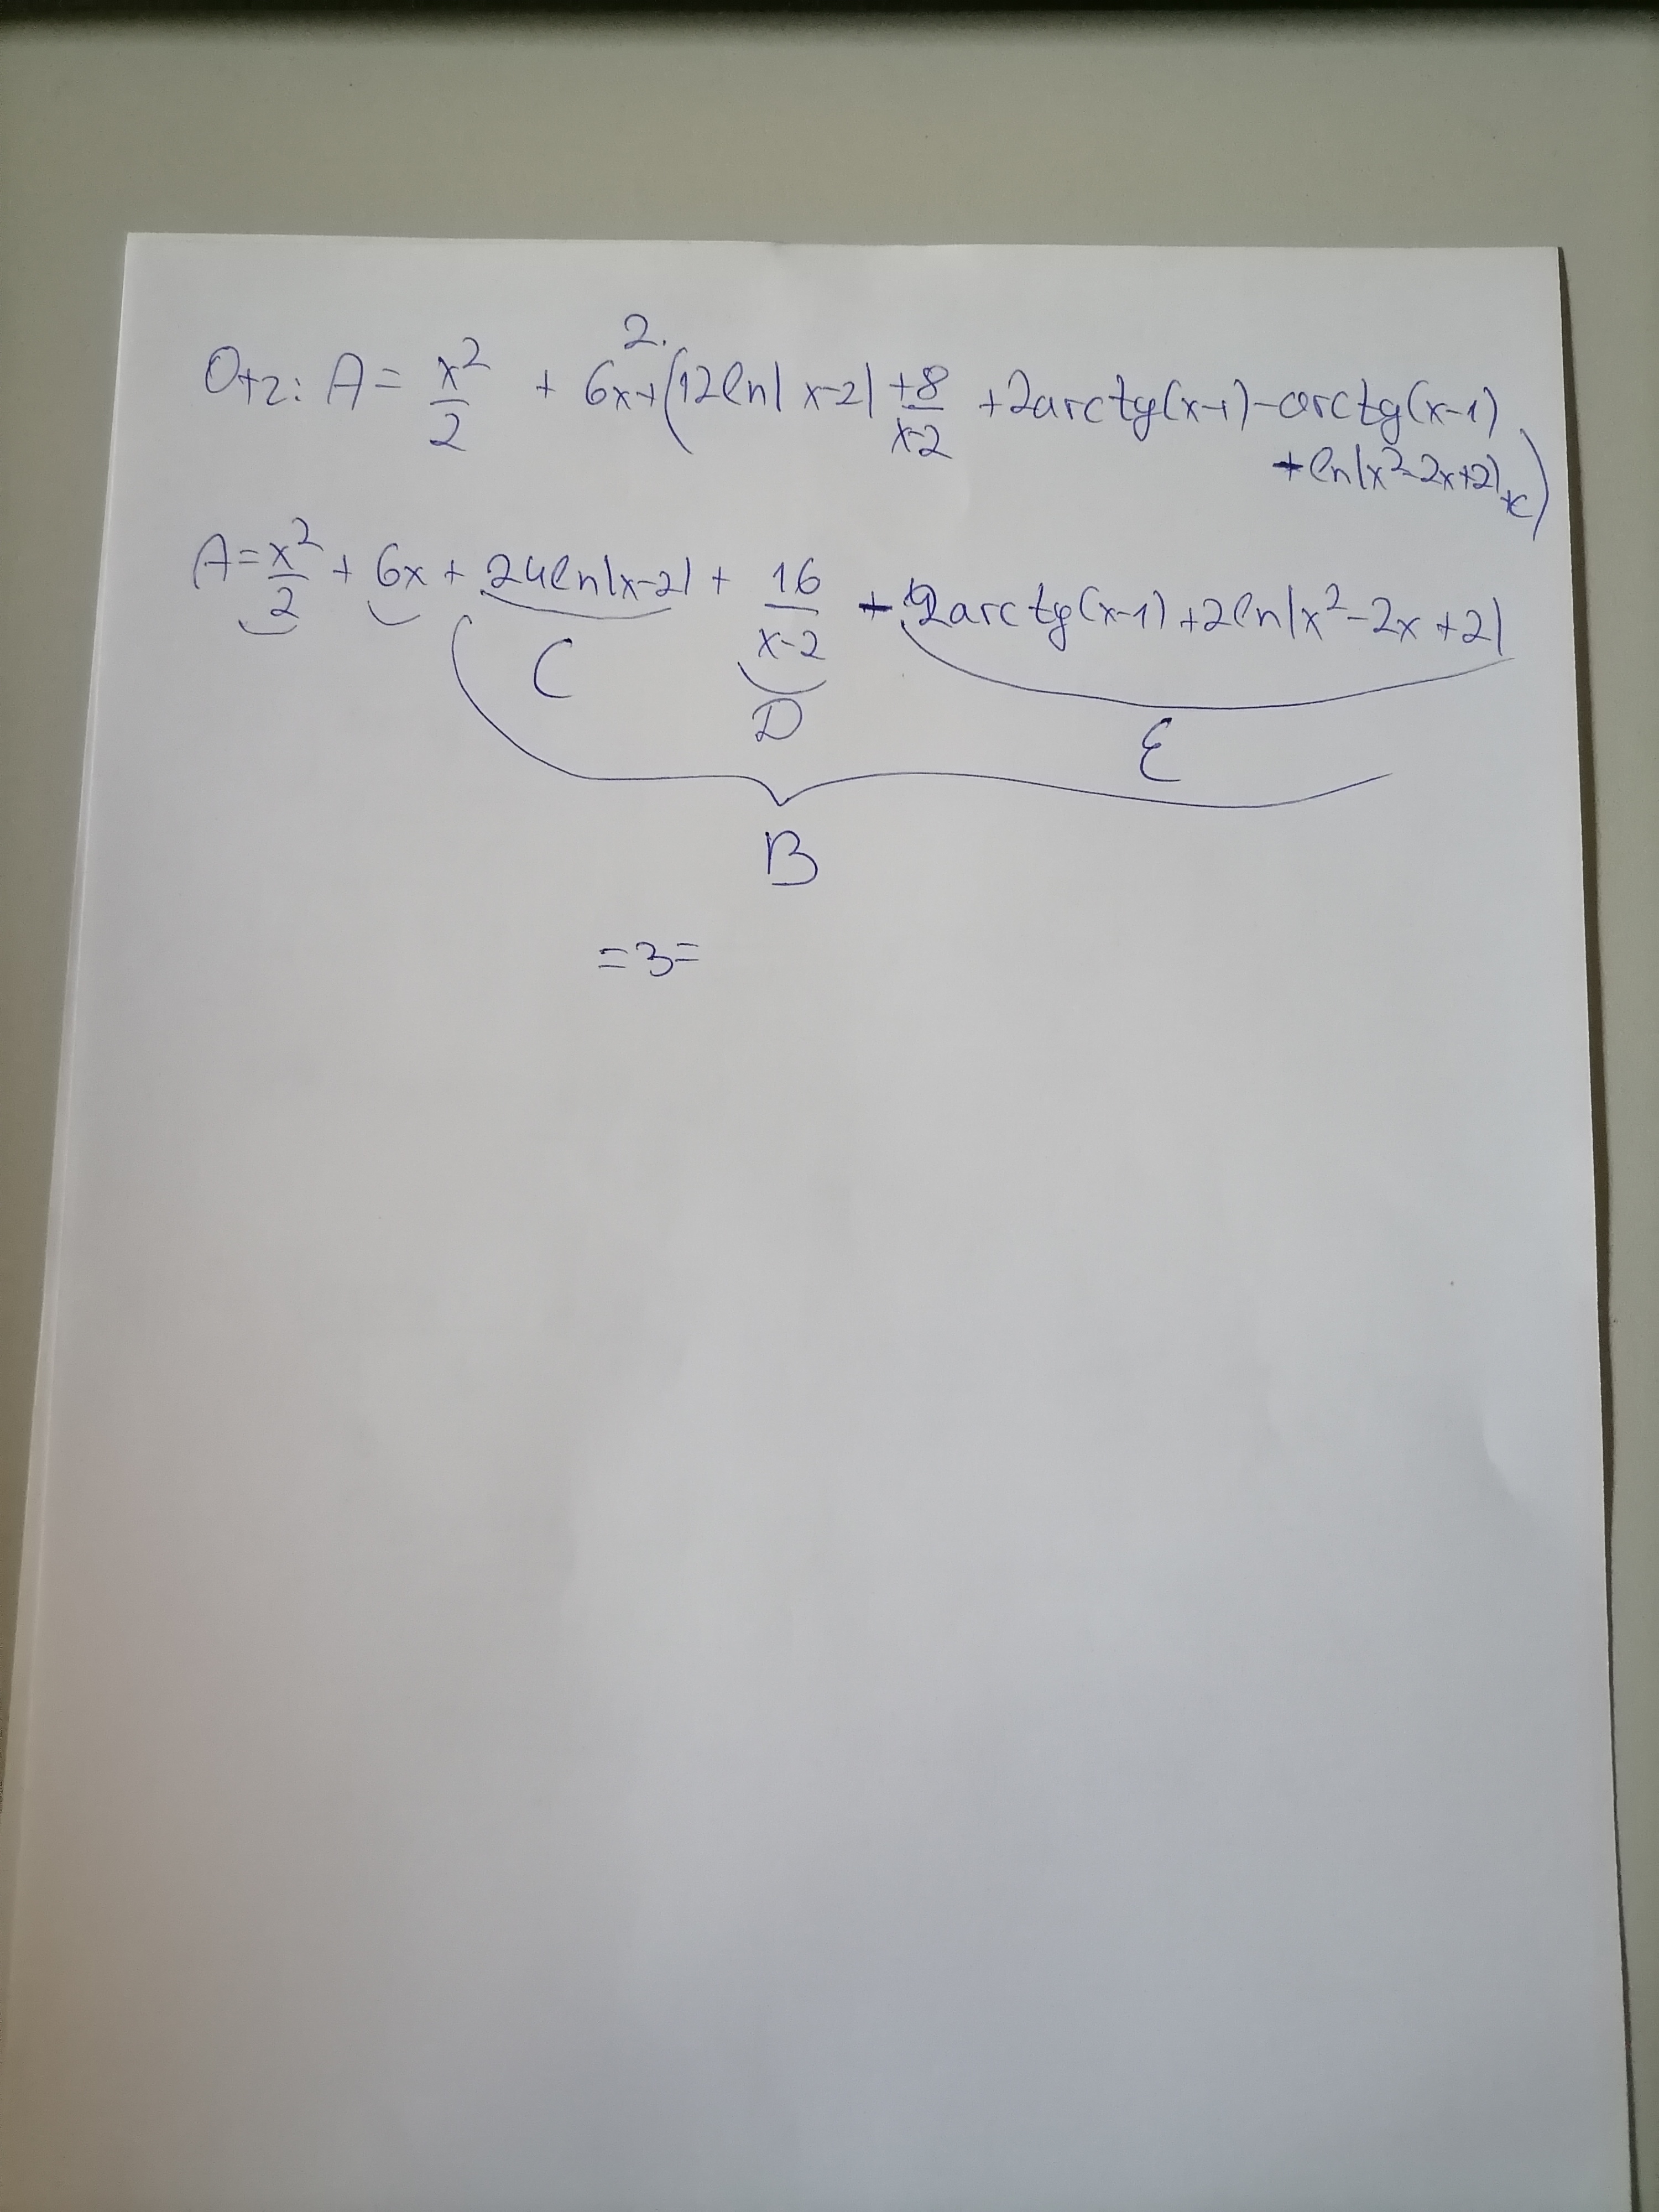 Отг: A = x²/2 + 6x + 2.(12ln|x-2| +8/x-2 + 2arctg(x-1) - arctg(x-1)
+ ln|x²-2x+2| +c)
A = x²/2 + 6x + 24ln|x-2| + 16/x-2 + 2arctg(x-1) + 2ln|x²-2x+2|
C
D
E
B
=3=